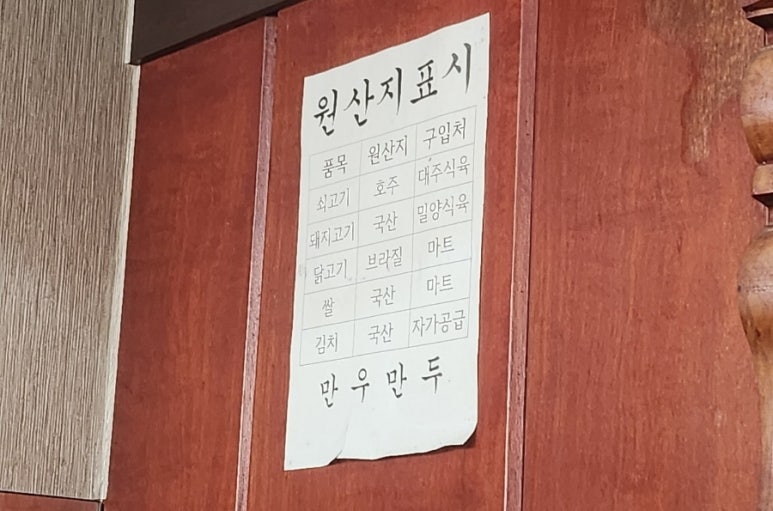 원산지표시
품목 원산지 구입처
쇠고기 호주 대주식육
돼지고기 국산 밀양식육
닭고기 브라질 마트
쌀 국산 마트
김치 국산 자가공급
만우만두